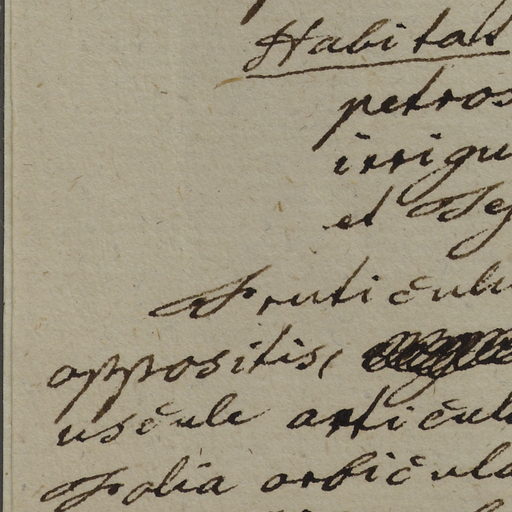 Habitat
petros
irrigu
et Seg
Fruticulu
oppositis,
uscule articul
Folia orbicula